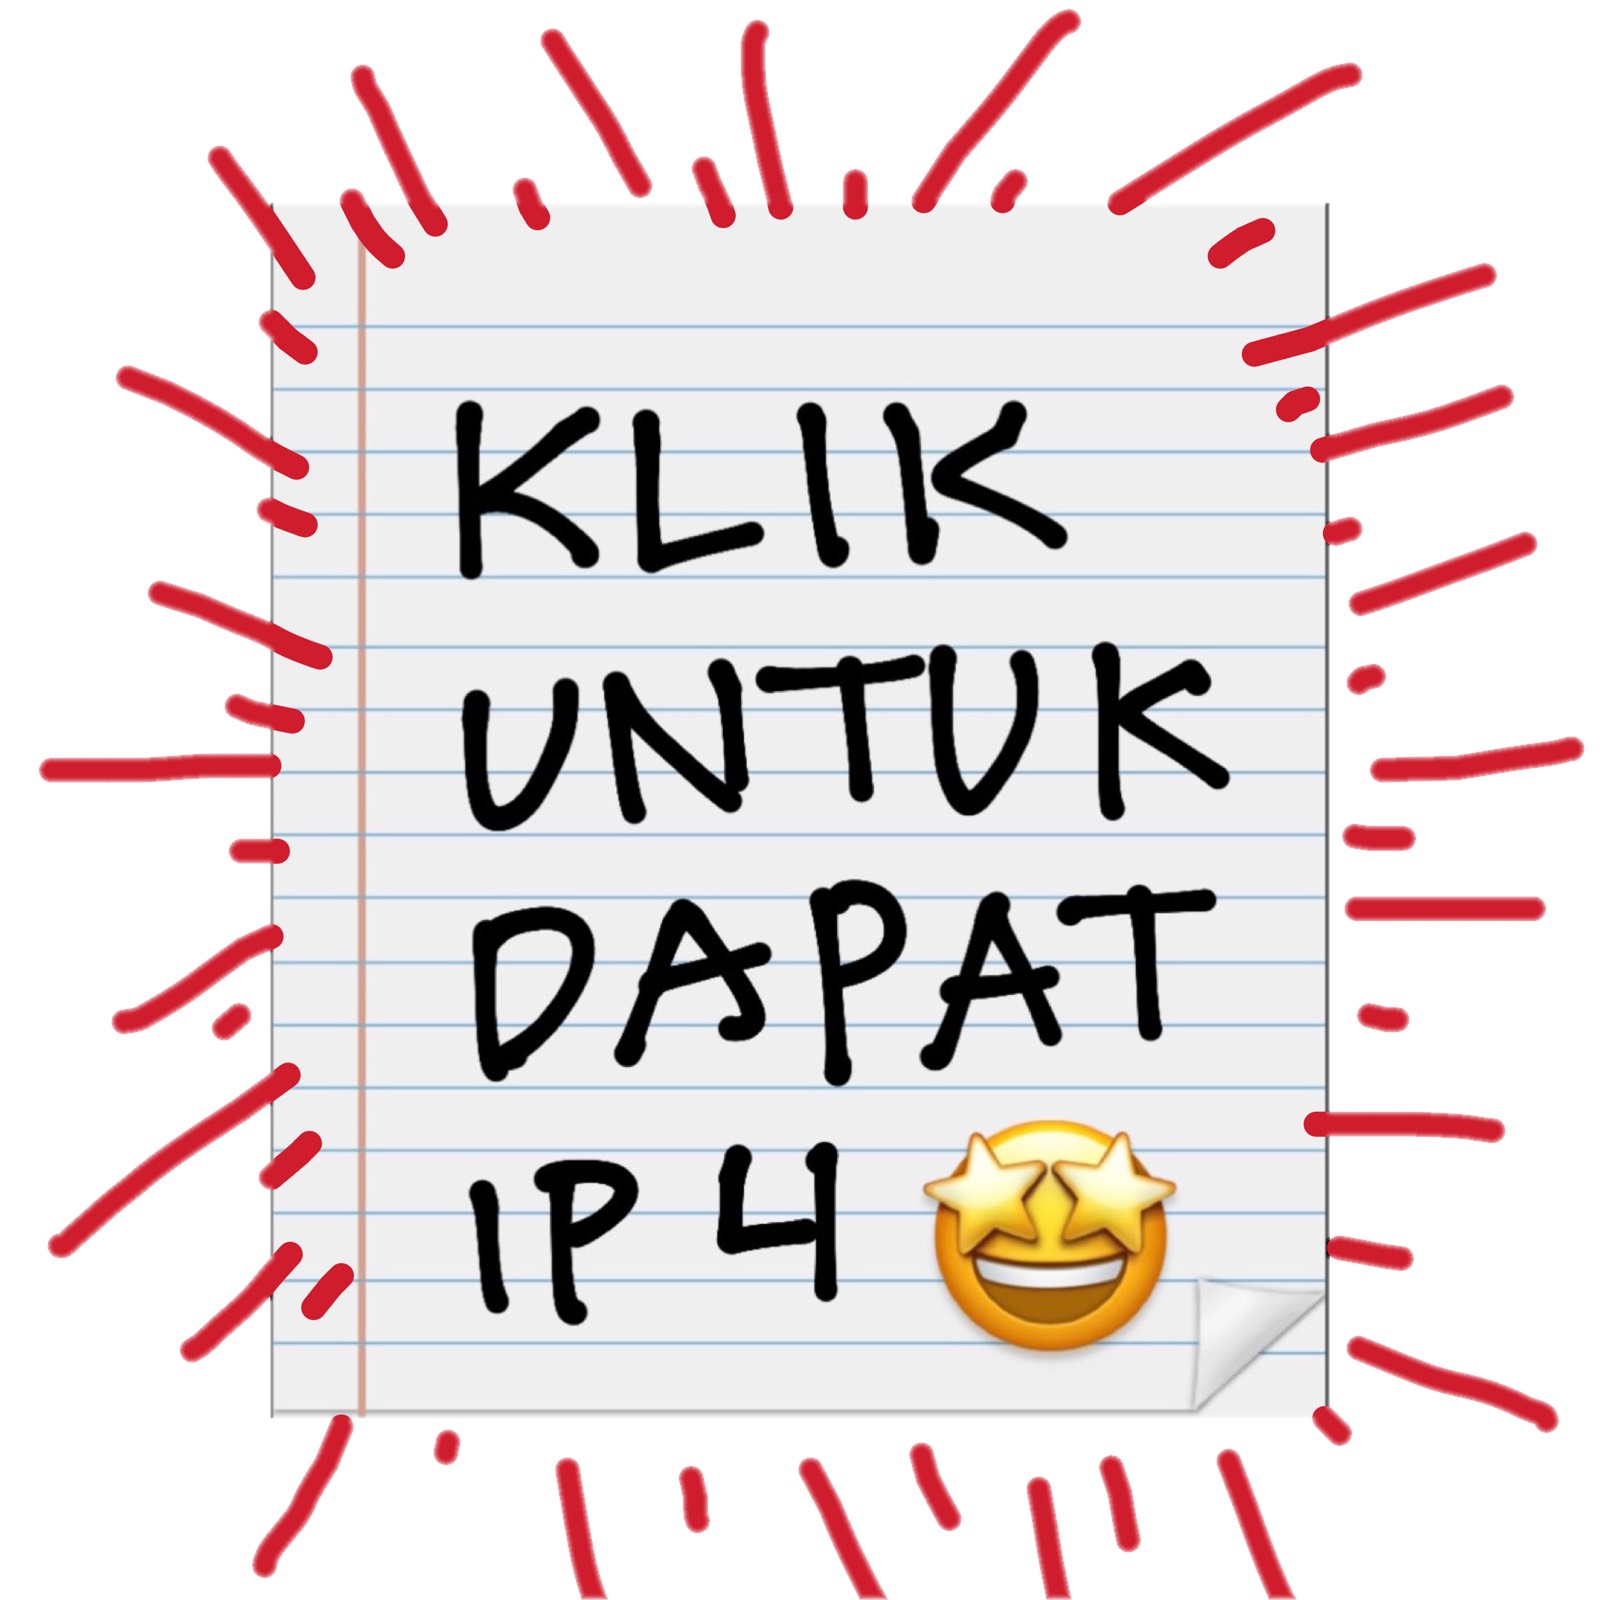 KLIK
UNTUK
DAPAT
IP 4 🤩